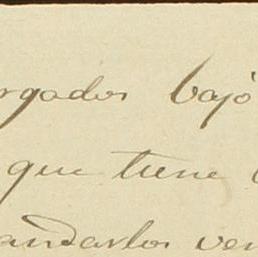 rgados bajó
que tiene
andarlos ven